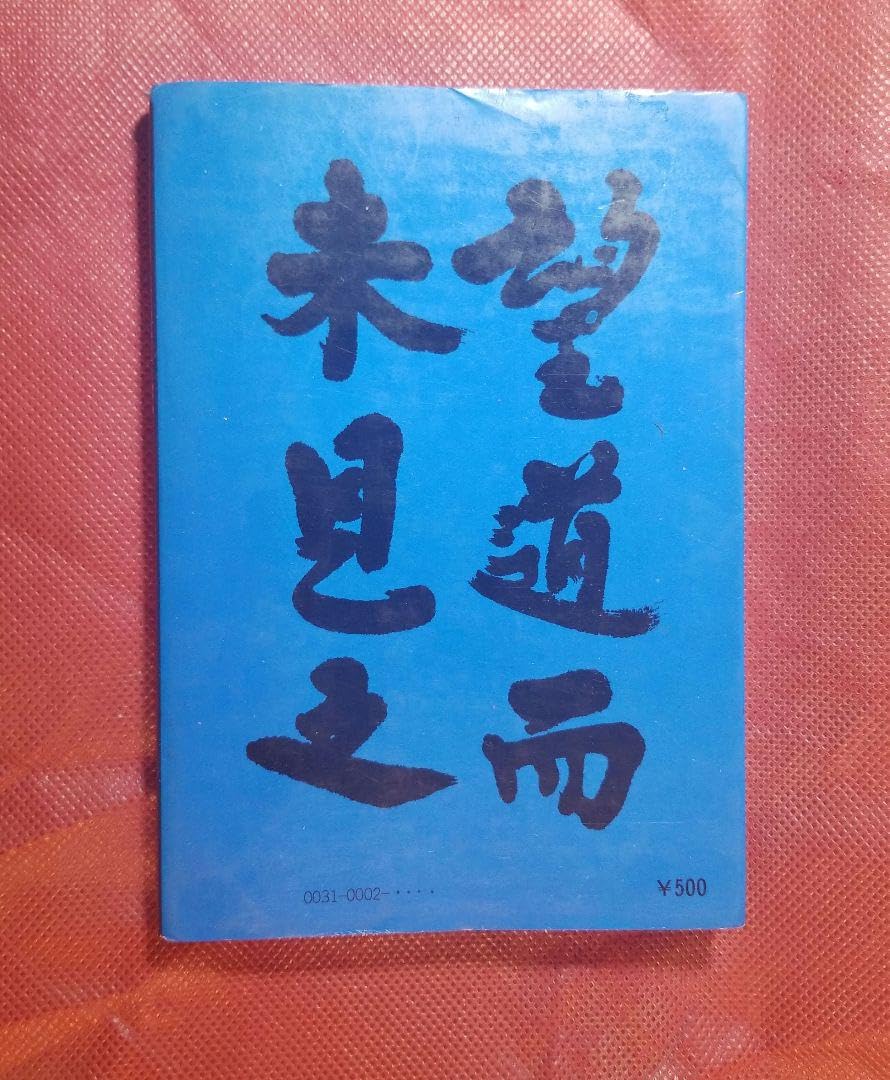 望道而
未見之
0031-0002-····
￥500